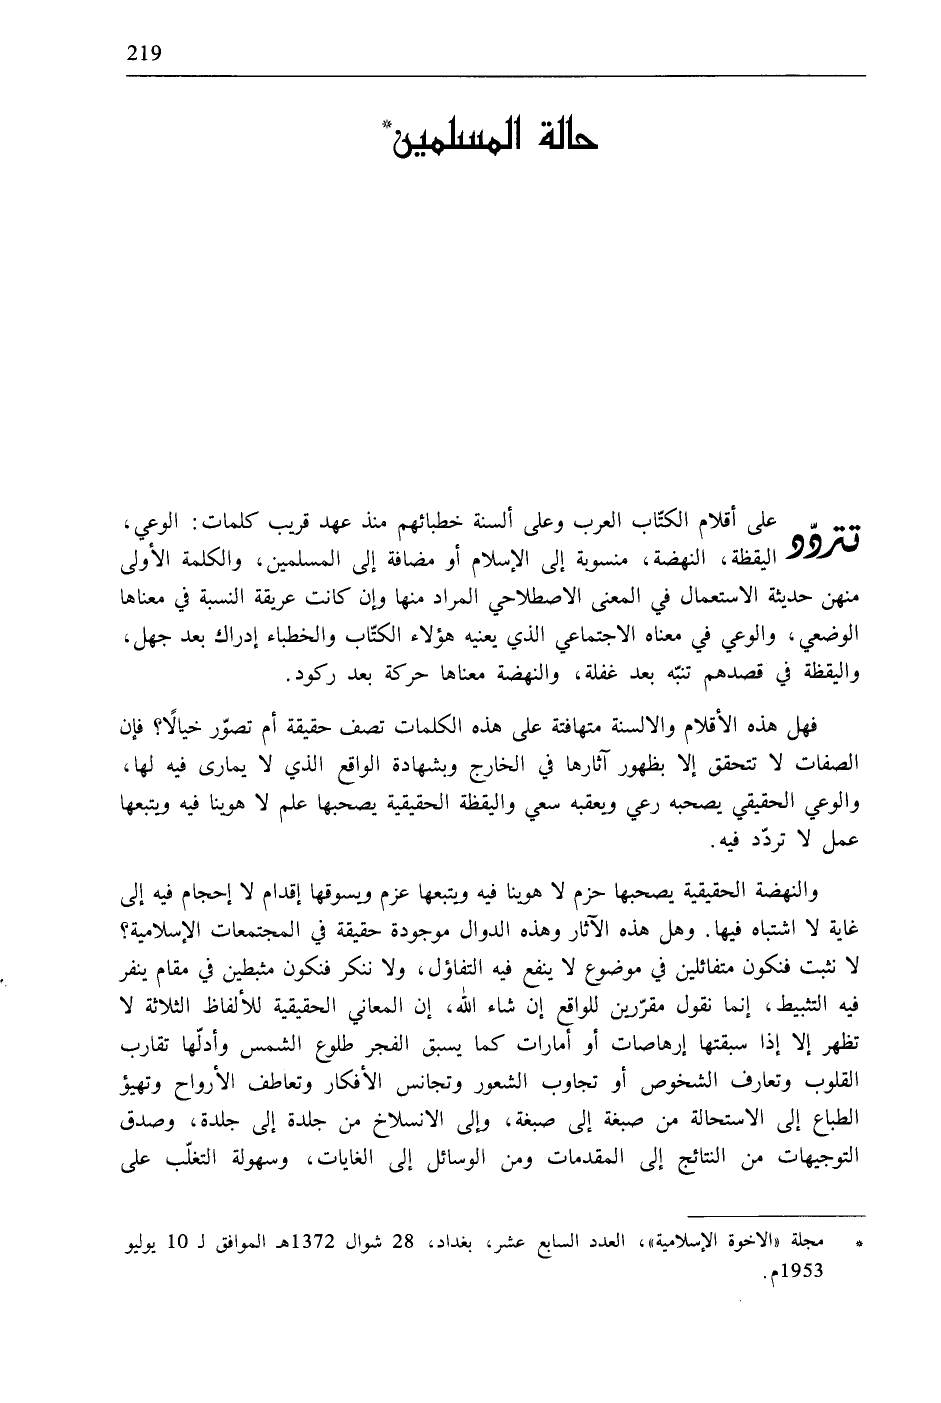 219
حالة المسلمين*
تتردّد على أقلام الكتّاب العرب وعلى ألسنة خطبائهم منذ عهد قريب كلمات: الوعي،
اليقظة، النهضة، منسوبة إلى الإسلام أو مضافة إلى المسلمين، والكلمة الأولى
منهن حديثة الاستعمال في المعنى الاصطلاحي المراد منها وإن كانت عريقة النسبة في معناها
الوضعي، والوعي في معناه الاجتماعي الذي يعنيه هؤلاء الكتّاب والخطباء إدراك بعد جهل،
واليقظة في قصدهم تنبّه بعد غفلة، والنهضة معناها حركة بعد ركود.
فهل هذه الأقلام والالسنة متهافتة على هذه الكلمات تصف حقيقة أم تصوّر خيالًا؟ فإن
الصفات لا تتحقق إلا بظهور آثارها في الخارج وبشهادة الواقع الذي لا يمارى فيه لها،
والوعي الحقيقي يصحبه رعي ويعقبه سعي واليقظة الحقيقية يصحبها علم لا هوينا فيه ويتبعها
عمل لا تردّد فيه.
والنهضة الحقيقية يصحبها حزم لا هوينا فيه ويتبعها عزم ويسوقها إقدام لا إحجام فيه إلى
غاية لا اشتباه فيها. وهل هذه الآثار وهذه الدوال موجودة حقيقة في المجتمعات الإسلامية؟
لا نثبت فنكون متفائلين في موضوع لا ينفع فيه التفاؤل، ولا ننكر فنكون مثبطين في مقام ينفر
فيه التثبيط، إنما نقول مقرّرين للواقع إن شاء الله، إن المعاني الحقيقية للألفاظ الثلاثة لا
تظهر إلا إذا سبقتها إرهاصات أو أمارات كما يسبق الفجر طلوع الشمس وأدلّها تقارب
القلوب وتعارف الشخوص أو تجاوب الشعور وتجانس الأفكار وتعاطف الأرواح وتهيؤ
الطباع إلى الاستحالة من صبغة إلى صبغة، وإلى الانسلاخ من جلدة إلى جلدة، وصدق
التوجيهات من النتائج إلى المقدمات ومن الوسائل إلى الغايات، وسهولة التغلّب على
* مجلة «الاخوة الإسلامية»، العدد السابع عشر، بغداد، 28 شوال 1372هـ الموافق لـ 10 يوليو
1953م.